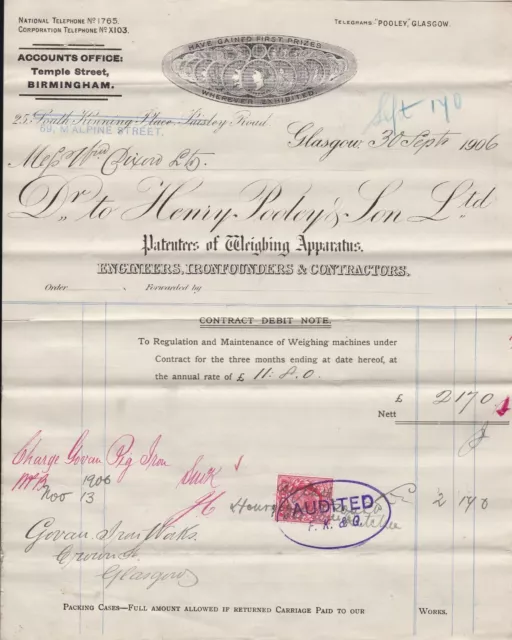 NATIONAL TELEPHONE Nº 1765.
CORPORATION TELEPHONE Nº X103.
TELEGRAMS: "POOLEY," GLASGOW.
ACCOUNTS OFFICE:
Temple Street,
BIRMINGHAM.
HAVE GAINED FIRST PRIZES
WHEREVER EXHIBITED
Sept 140
25, South Kinning Place Paisley Road
69, MALPINE STREET.
Glasgow, 30 Sept 1906
Messrs Wm Dixon Ltd.
Dr. to Henry Pooley & Son Ltd
Patentees of Weighing Apparatus.
ENGINEERS, IRONFOUNDERS & CONTRACTORS.
Order Forwarded by
CONTRACT DEBIT NOTE.
To Regulation and Maintenance of Weighing machines under
Contract for the three months ending at date hereof, at
the annual rate of £ 11. 8. 0.
£ 2 17 0
Nett
Charge Govan Pig Iron
1906
Nov 13
AUDITED
2 17 0
Govan Iron Works.
Glasgow
PACKING CASES—FULL AMOUNT ALLOWED IF RETURNED CARRIAGE PAID TO OUR WORKS.